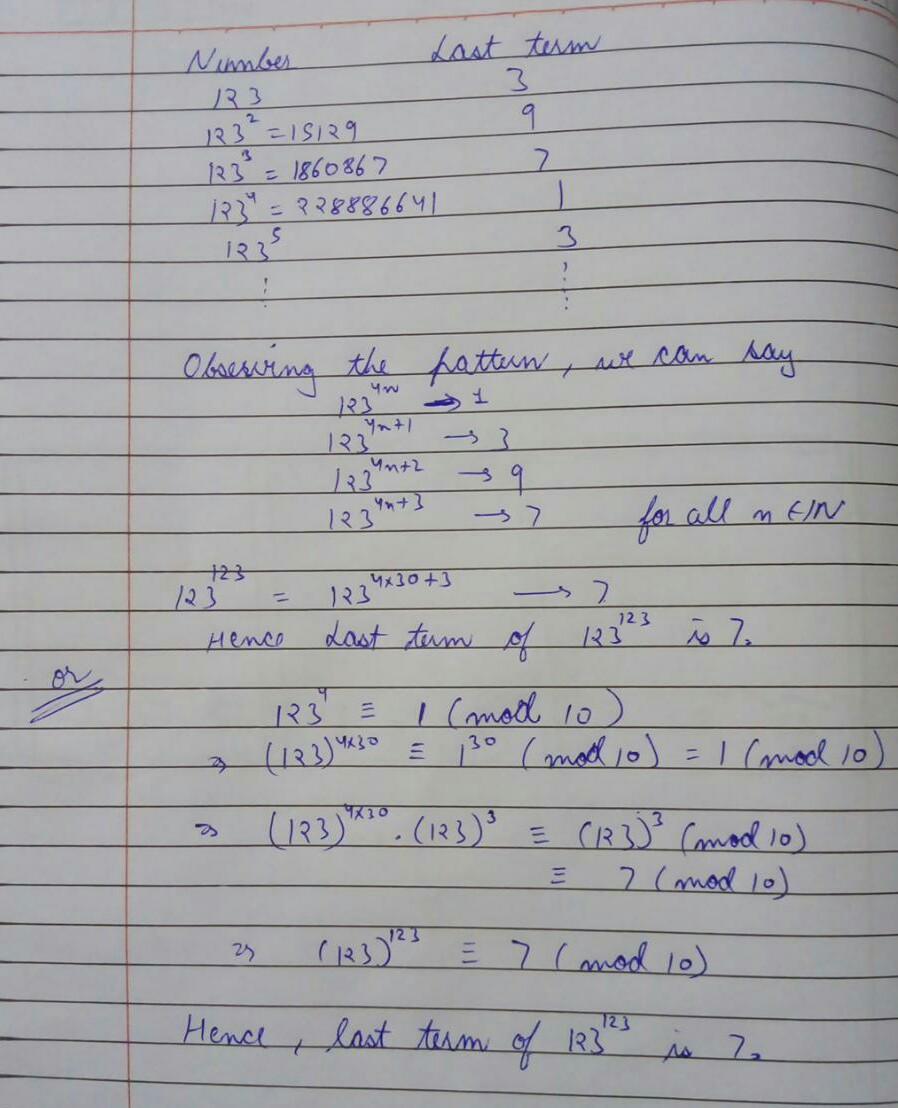 Number Last term
123 3
123² = 15129 9
123³ = 1860867 7
123⁴ = 228886641 1
123⁵ 3
⋮ ⋮
Observing the pattern, we can say
123⁴ⁿ → 1
123⁴ⁿ⁺¹ → 3
123⁴ⁿ⁺² → 9
123⁴ⁿ⁺³ → 7 for all n ∈ IN
123¹²³ = 123⁴ˣ³⁰⁺³ → 7
Hence Last term of 123¹²³ is 7.
or
123⁴ ≡ 1 (mod 10)
⇒ (123)⁴ˣ³⁰ ≡ 1³⁰ (mod 10) = 1 (mod 10)
⇒ (123)⁴ˣ³⁰ . (123)³ ≡ (123)³ (mod 10)
≡ 7 (mod 10)
⇒ (123)¹²³ ≡ 7 (mod 10)
Hence, last term of 123¹²³ is 7.